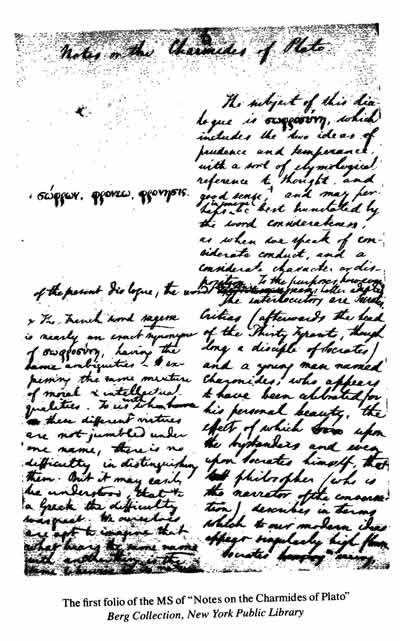 Notes on the Charmides of Plato
The subject of this dia-
logue is σωφροσύνη, which
includes the two ideas of
prudence and temperance
with a sort of etymological
reference to thought and
good sense, and may per-
haps be best translated by
the word considerateness;
as when we speak of con-
siderate conduct, and a
considerate character or dis-
To the purposes however
σώφρων, φρονεω, φρονησις.
of the present dialogue, the word
The interlocutors are Socrates
Critias (afterwards the head
of the Thirty Tyrants, though
long a disciple of Socrates)
and a young man named
Charmides, who appears
to have been celebrated for
his personal beauty, the
effect of which upon
the bystanders and even
upon Socrates himself, that
philosopher (who is
the narrator of the conversa-
tion) describes in terms
which to our modern ideas
appear singularly high flown
Socrates having
x The French word sagesse
is nearly an exact synonyme
of σωφροσύνη, having the
same ambiguities & ex-
pressing the same mixture
of moral & intellectual
qualities. To us with whom
these different virtues
are not jumbled under
one name, there is no
difficulty in distinguishing
them. But it may easily
be understood, that to
a Greek the difficulty
was great. We ourselves
are apt to imagine that
what bears the same name
The first folio of the MS of “Notes on the Charmides of Plato”
Berg Collection, New York Public Library